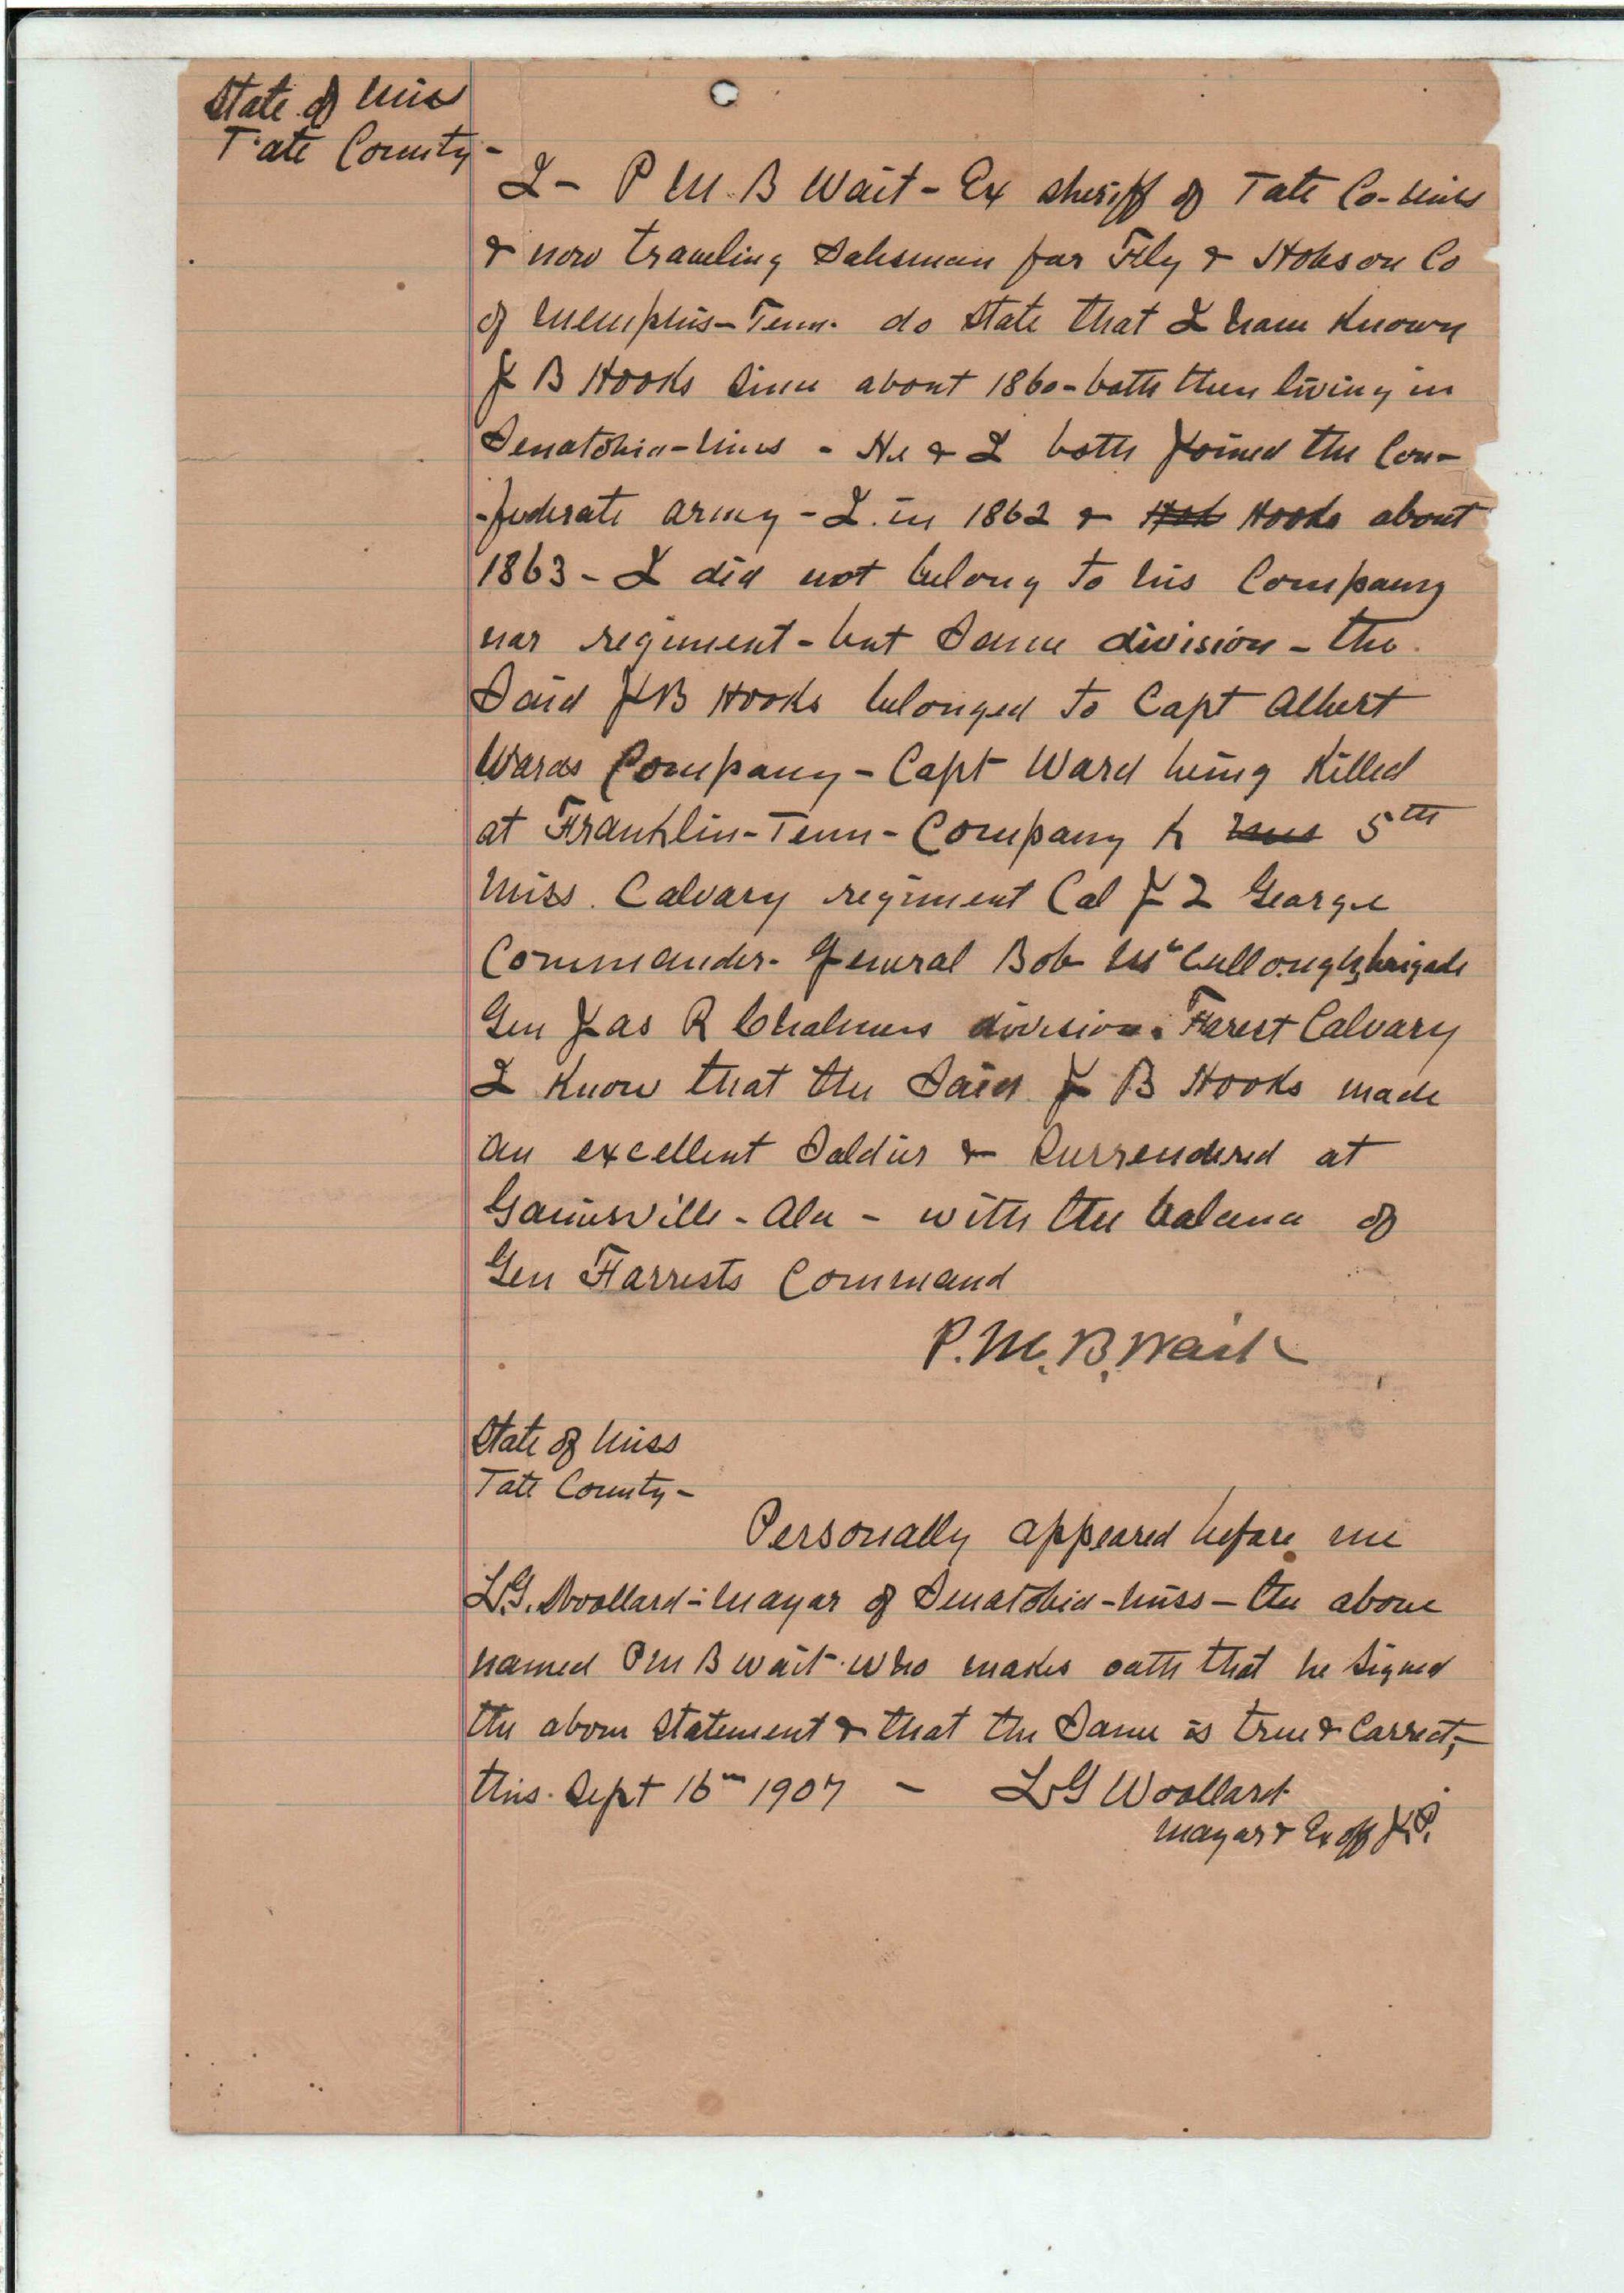 State of Miss
Tate County-
I- P M. B Wait- Ex Sheriff of Tate Co-Miss
& now traveling Salesman for Fly & Hobson Co
of Memphis-Tenn. do State that I have Known
J B Hooks Since about 1860-both then living in
Senatobia-Miss - He & I both Joined the Con-
-federate army-I. in 1862 & Hooks about
1863- I did not belong to his Company
nor regiment-but Same division-the
Said J B Hooks belonged to Capt Albert
Wards Company-Capt Ward being Killed
at Franklin-Tenn-Company K 5th
Miss. Calvary regiment Col J Z George
Commander. General Bob McCulloughs brigade
Gen Jas R Chalmers division. Forest Calvary
I Know that the Said J B Hooks made
an excellent Soldier & Surrendered at
Gainsville-Ala- with the balance of
Gen Forrests Command
P. M. B. Wait
State of Miss
Tate County-
Personally appeared before me
L.G. Woollard-Mayor of Senatobia-Miss-the above
named P M B Wait who makes oath that he Signed
the above Statement & that the Same is true & Correct,-
this. Sept 16th 1907 - L G Woollard
Mayor & Ex off J.P.